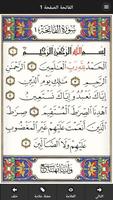 الفاتحة الصفحة 1
سُورَةُ الفَاتِحَةِ
بِسْمِ اللَّهِ الرَّحْمَٰنِ الرَّحِيمِ
الْحَمْدُ لِلَّهِ رَبِّ الْعَالَمِينَ
الرَّحْمَٰنِ الرَّحِيمِ مَالِكِ يَوْمِ
الدِّينِ إِيَّاكَ نَعْبُدُ وَإِيَّاكَ
نَسْتَعِينُ اهْدِنَا الصِّرَاطَ
الْمُسْتَقِيمَ صِرَاطَ الَّذِينَ أَنْعَمْتَ
عَلَيْهِمْ غَيْرِ الْمَغْضُوبِ عَلَيْهِمْ وَلَا الضَّالِّينَ
التالي
حفظ علامة
خلف